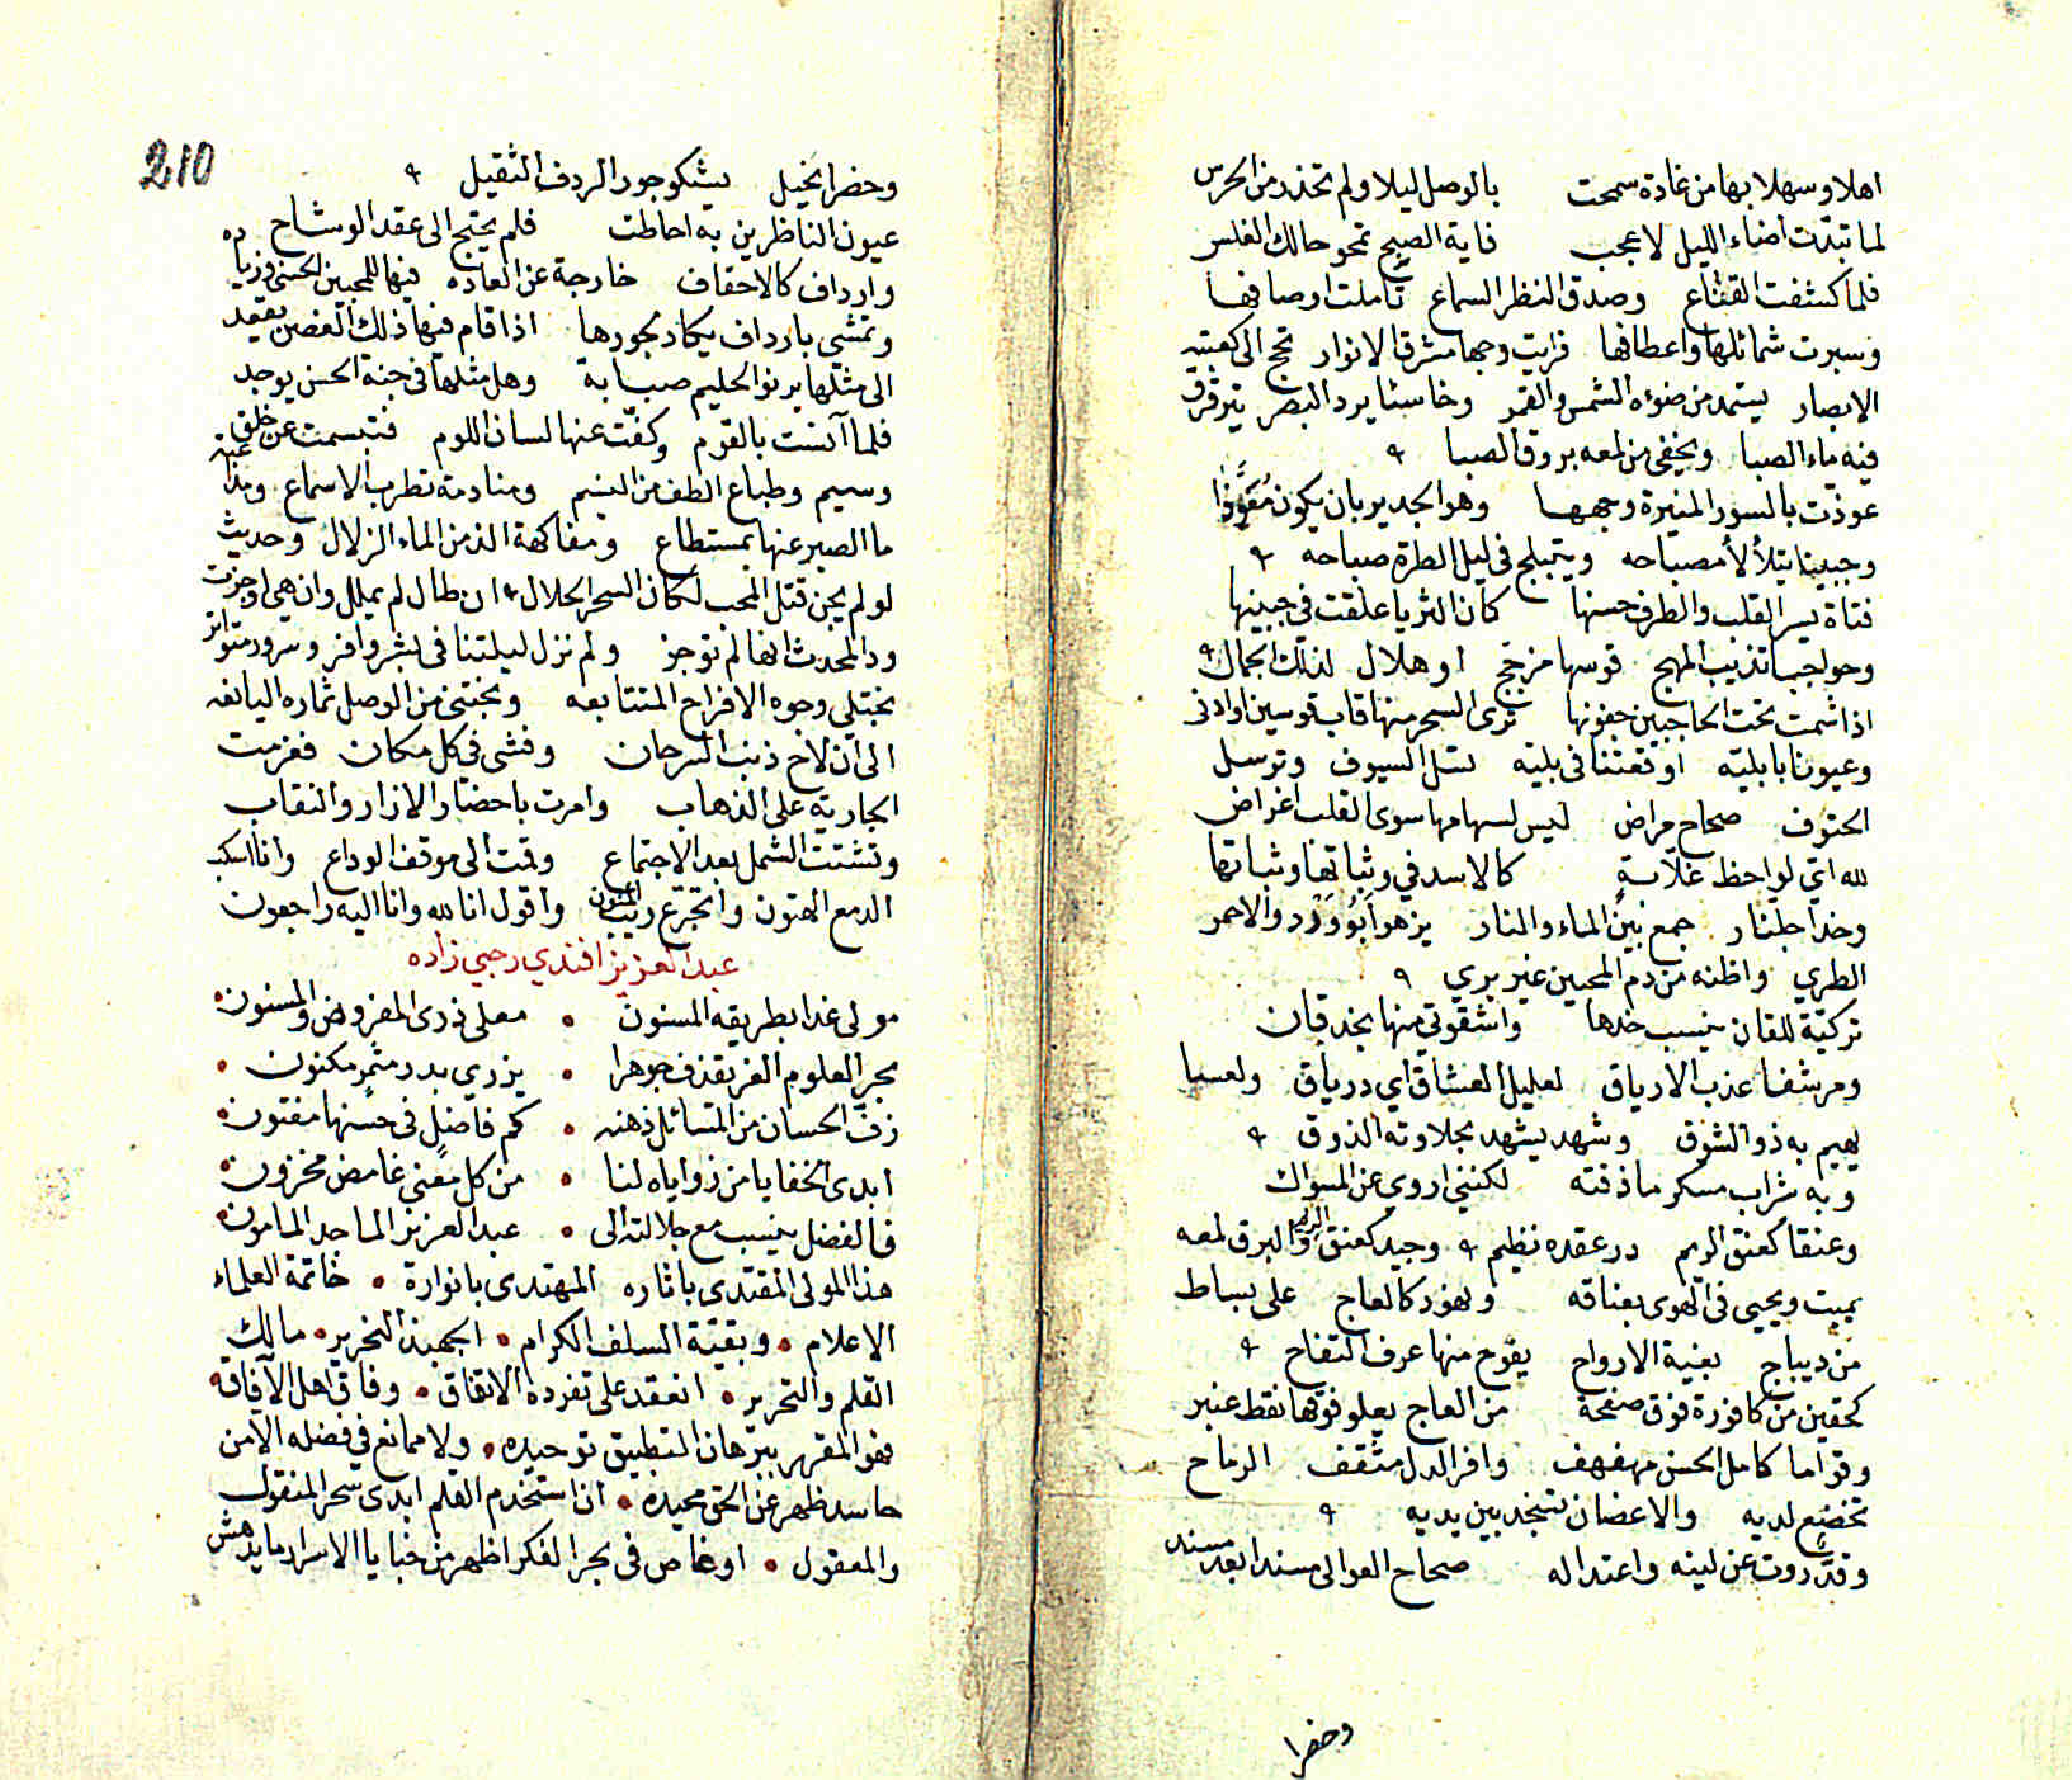 اهلا وسهلا بها من غادة سمحت   بالوصل ليلا ولم تحذر من الحرس
لما تبدّت اضاء الليل لا عجب   فاية الصبح تمحو حالك الغلس
فلما كشفت القناع   وصدق النظر السماع   تاملت اوصافها
وسبرت شمائلها واعطافها   فرايت وجها مشرق الانوار   تحج الى كعبته
الابصار   يستمد من ضوءه الشمس والقمر   وخاسئا يرد البصر   يترقرق
فيه ماء الصبا   ويخفى من لمعه بروق الصبا ٩
عوذت بالسور المنيرة وجهها   وهو الجدير بان يكون مُعَوَّذا
وجبينا يتلألأ مصباحه   ويتبلج في ليل الطرة صباحه ٩
فتاة يسر القلب والطرف حسنها   كان الثريا علقت في جبينها
وحواجبا تذيب المهج   قوسها مزجج   او هلال لذلك الجمال ٩
اذا شمت تحت الحاجبين جفونها   ترى السحر منها قاب قوسين او ادنى
وعيونا بابلية   اوقعتنا في بلية   تسل السيوف وترسل
الحتوف   صحاح مراض   ليس لسهامها سوى القلب اغراض
لله اي لواحظ غلابةٍ   كالاسد في وثباتها وثباتها
وخدا جلنار   جمع بين الماء والنار   يزهو ابو وَرْد والاحمر
الطري   واظنه من دم المحبين غير بري ٩
تركيّة للقان ينسب خدها   واشقوتي منها بخد قان
ومرشفا عذب الارياق   لعليل العشاق اي درياق   ولعسا
يهيم به ذو الشوق   وشهد يشهد بحلاوته الذوق ٩
وبه شراب مسكر ما ذقته   لكنني اروي عن المسواك
وعنقا كعنق الريم   در عقده نظيم ٩ وجيد كعنق الريم والبرق لمعه
يميت ويحيي في الهوى بعناقه   ونهود كالعاج   على بساط
من ديباج   بغية الارواح   يفوح منها عرف التفاح ٩
كحقين من كافورة فوق صفحة   من العاج يعلو فوقها نقط عنبر
وقواما كامل الحسن مهفهف   وافر الدل مثقف   الرماح
تخضع لديه   والاغصان تسجد بين يديه ٩
وقدّ روت عن لينه واعتداله   صحاح العوالي مسندا بعد مسند
وخصرا
210
وخصرا نحيل   يشكو جور الردف الثقيل ٩
عيون الناظرين به احاطت   فلم يحتج الى عقد الوشاح
وارداف كالاحقاف   خارجة عن العاده   فيها للمحبين الحسنى وزياده
وتمشي بارداف يكاد بجورها   اذا قام فيها ذلك الغصن يقعد
الى مثلها يرنو الحليم صبابة   وهل مثلها في جنة الحسن يوجد
فلما آنست بالقوم   وكفّت عنها لسان اللوم   فتبسمت عن خلق
وسيم   وطباع الطف من النسيم   ومنادمة تطرب الاسماع   ومذاعبة
ما الصبر عنها بمستطاع   ومفاكهة الذ من الماء الزلال   وحديث
لو لم يجن قتل المحب لكان السحر الحلال ٩ ان طال لم يملل وان هي اوجزت
ود المحدث انها لم توجز   ولم نزل ليلتنا في بشر وافر   وسرور متواتر
نجتلي وجوه الافراح المتتابعه   ونجتني من الوصل ثماره اليانعه
الى ان لاح ذنب السرحان   وفشى في كل مكان   فعزمت
الجارية على الذهاب   وامرت باحضار الازار والنقاب
وتشتت الشمل بعد الاجتماع   وقمت الى موقف الوداع   وانا اسكب
الدمع الهتون   واتجرع ريب المنون   واقول انا لله وانا اليه راجعون
عبد العزيز افندي رحبي زاده
مولى غدا بطريقه المسنون • معلى ذرى المفروض والمسنون •
بحر العلوم الغر يقذف جوهرا • يزري بدر مثمر مكنون •
زفّ الحسان من المسائل ذهنه • كم فاضلٍ في حسنها مفتون •
ابدى الخفايا من زواياه لنا • من كل معنى غامض مخزون •
فالفضل ينسب مع جلالته الى • عبد العزيز الماجد المامون •
هذا المولى المقتدى باثاره   المهتدى بانواره • خاتمة العلماء
الاعلام • وبقيّة السلف الكرام • الجهبذ النحرير • مالك
القلم والتحرير • انعقد على تفرده الاتفاق • وفاق اهل الآفاق •
فهو المقرر ببرهان التطبيق توحيده • ولا ممانع في فضله الا من
حاسد ظهر عن الحق محيده • ان استخدم القلم ابدى سحر المنقول
والمعقول • او غاص في بحر الفكر اظهر من خبايا الاسرار ما يدهش